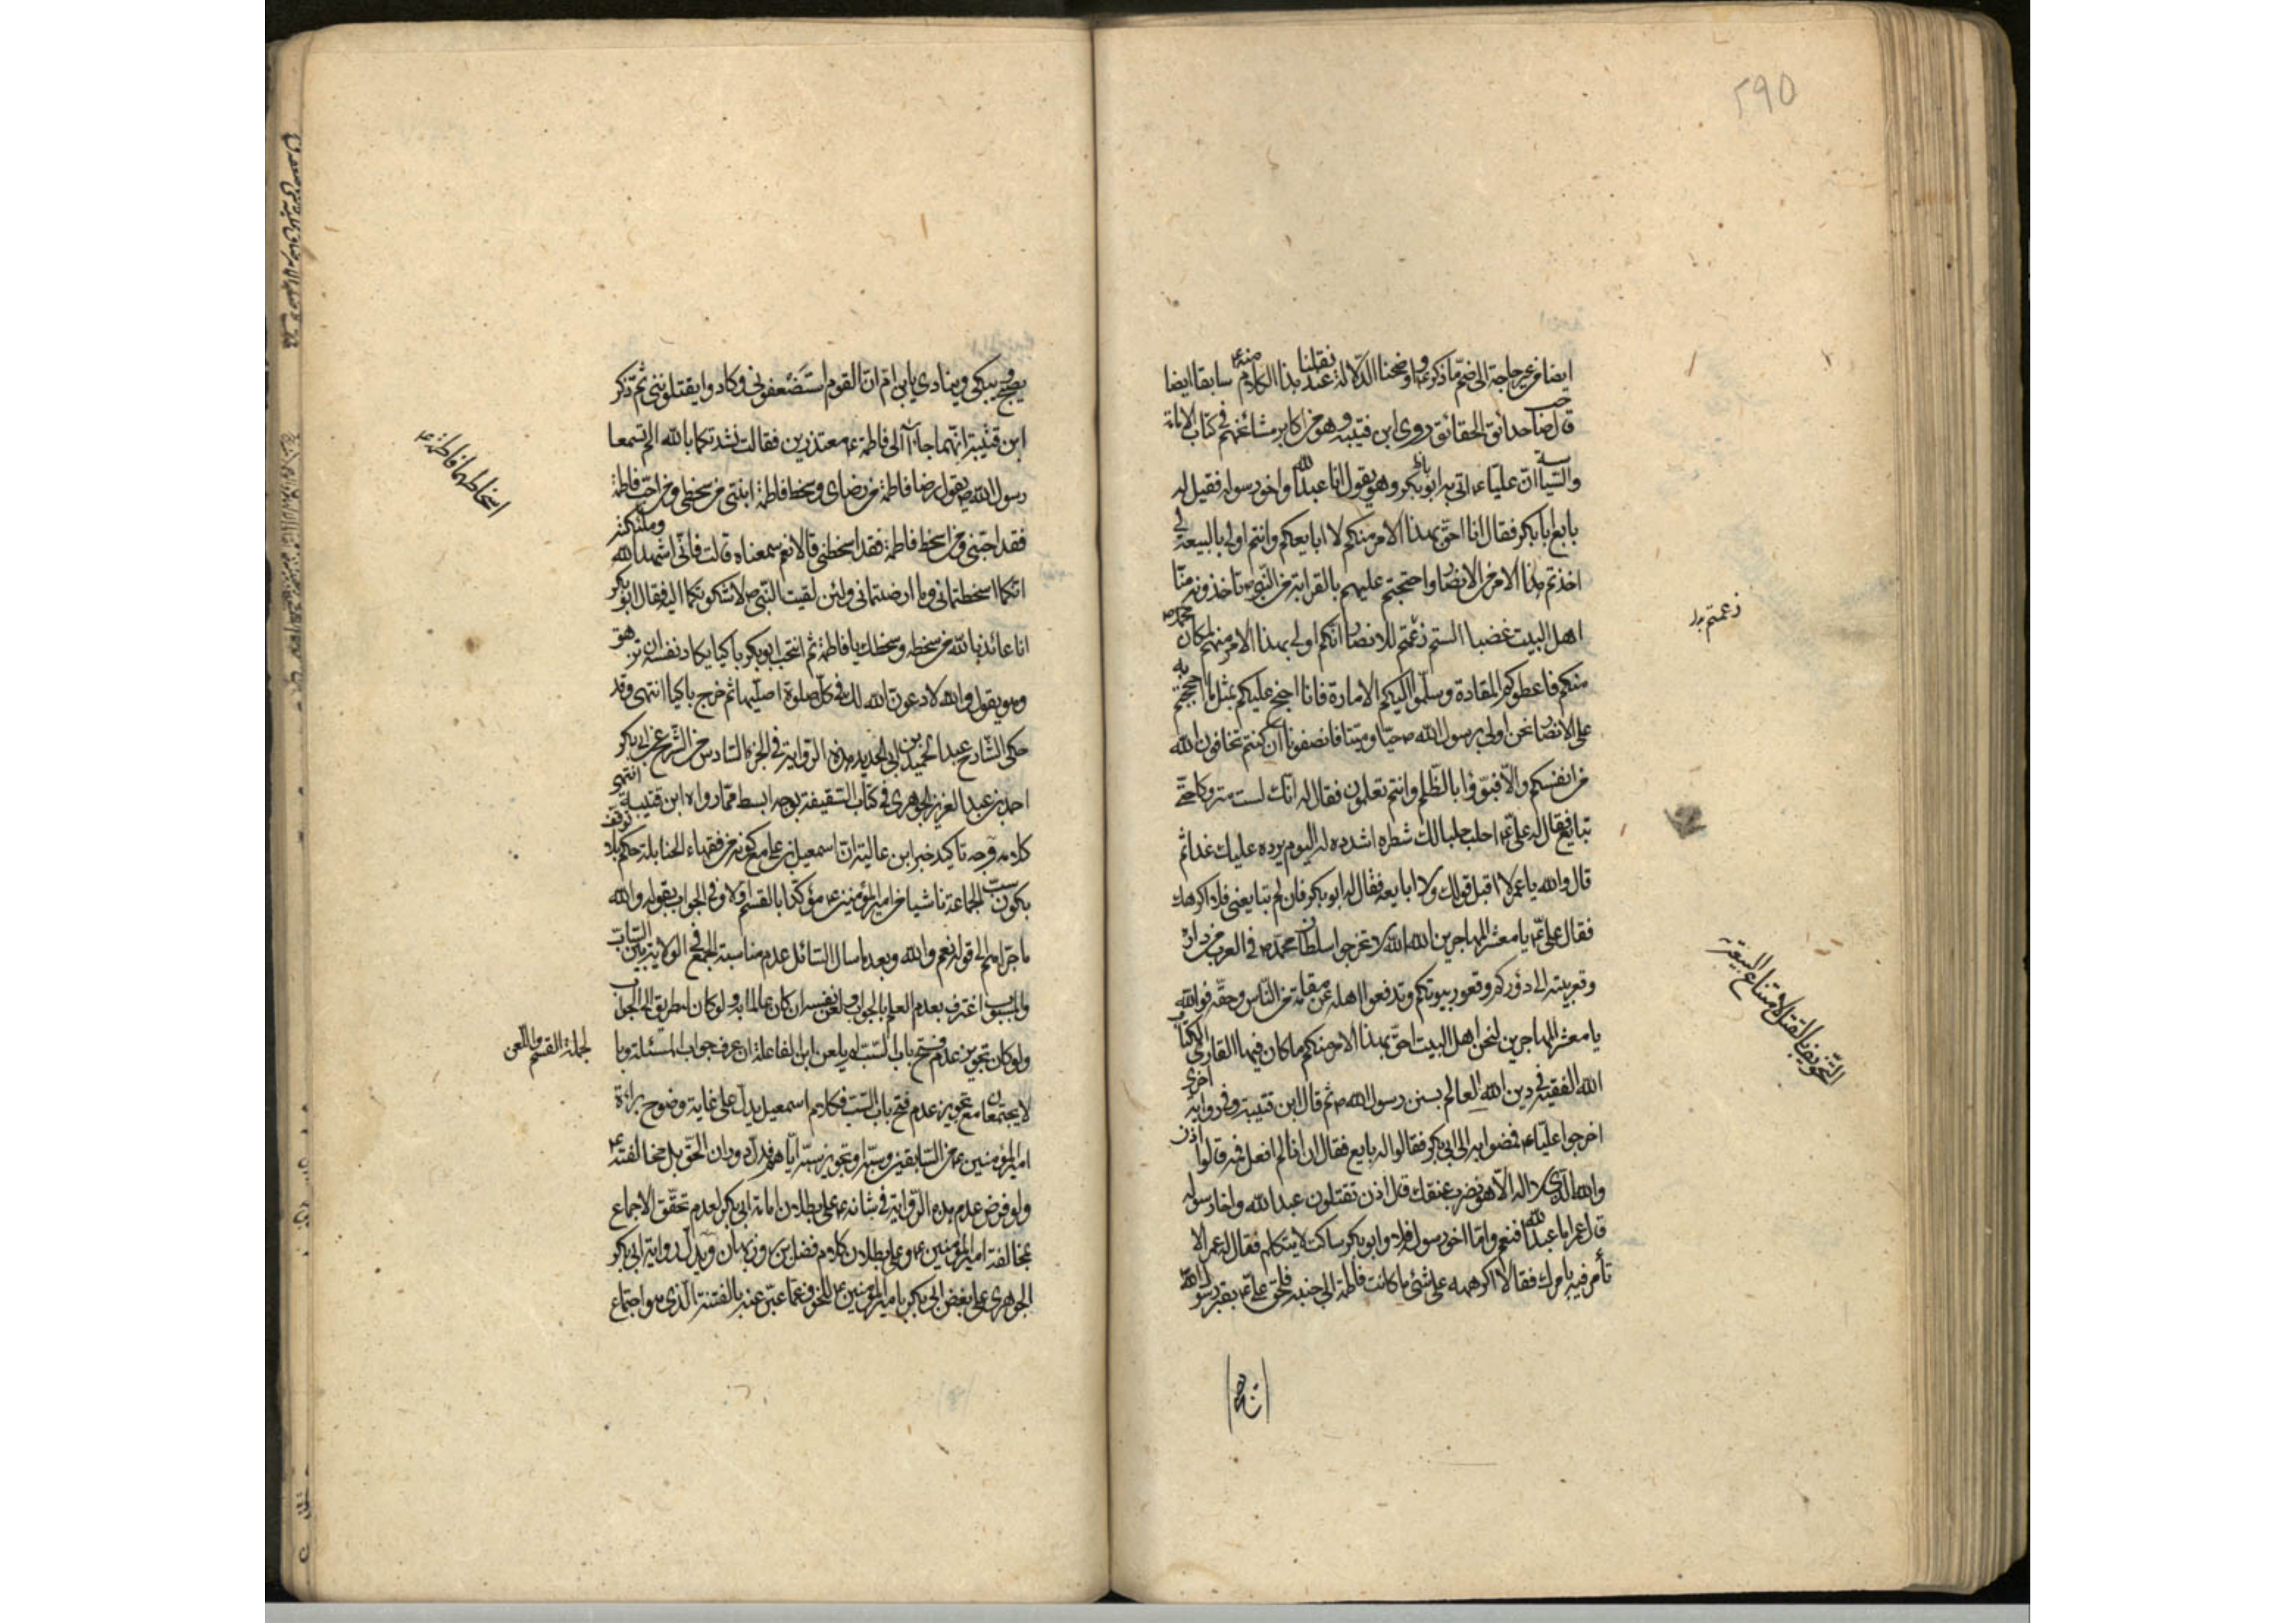 ۲۹۵
ايضا من غير حاجة الى ضم ما ذكره و اوضحنا الدلالة عند نقلنا هذا الكلام منه سابقا ايضا
قال صاحب حدائق الحقائق روى ابن قتيبة وهو من اكابر مشائخهم في كتاب الامامة
والسياسة ان عليا ع اتى به ابو بكر وهو يقول انا عبد الله واخو رسوله فقيل له
بايع ابا بكر فقال انا احق بهذا الامر منكم لا ابايعكم وانتم اولى بالبيعة لي
اخذتم هذا الامر من الانصار واحتججتم عليهم بالقرابة من النبي ص تاخذونه منا
اهل البيت غصبا الستم زعمتم للانصار انكم اولى بهذا الامر منهم لمكان محمد ص
منكم فاعطوكم المقادة وسلموا اليكم الامارة فانا احتج عليكم بمثل ما احتججتم به
على الانصار نحن اولى برسول الله ص حيا وميتا فانصفونا ان كنتم تخافون الله
من انفسكم والا فبوؤا بالظلم وانتم تعلمون فقال له انك لست متروكا حتى
تبايع فقال له علي ع احلب حلبا لك شطره اشدده له اليوم يرده عليك غدا ثم
قال والله يا عمر لا اقبل قولك ولا ابايعه فقال له ابو بكر فان لم تبايعني فلا اكرهك
فقال علي ع يا معشر المهاجرين الله الله لا تخرجوا سلطان محمد ص في العرب من داره
وقعر بيته الى دوركم وقعور بيوتكم وتدفعوا اهله عن مقامه في الناس وحقه فوالله
يا معشر المهاجرين لنحن اهل البيت احق بهذا الامر منكم ما كان فيها القارى لكتاب
الله الفقيه في دين الله العالم بسنن رسول الله ص ثم قال ابن قتيبة وفي رواية اخرى
اخرجوا عليا ع فمضوا به الى ابي بكر فقالوا له بايع فقال ان انا لم افعل فمه قالوا اذن
والله الذي لا اله الا هو نضرب عنقك قال اذن تقتلون عبد الله واخا رسوله
قال عمر اما عبد الله فنعم واما اخو رسوله فلا وابو بكر ساكت لا يتكلم فقال له عمر الا
تأمر فيه بامرك فقال لا اكرهه على شئ ما كانت فاطمة الى جنبه فلحق علي ع بقبر رسول الله
زعمتم بدل
التخويف بالقتل لامتناع البيعة
يصيح ويبكي وينادي يا ابن ام ان القوم استضعفوني وكادوا يقتلونني ثم ذكر
ابن قتيبة انهما جاءا الى فاطمة ع معتذرين فقالت نشدتكما بالله الم تسمعا
رسول الله ص يقول رضا فاطمة من رضاي وسخط فاطمة ابنتي من سخطي ومن احب فاطمة
فقد احبني ومن اسخط فاطمة فقد اسخطني قالا نعم سمعناه قالت فاني اشهد الله وملئكته
انكما اسخطتماني وما ارضيتماني ولئن لقيت النبي ص لاشكونكما اليه فقال ابو بكر
انا عائذ بالله من سخطه وسخطك يا فاطمة ثم انتحب ابو بكر باكيا يكاد نفسه ان تزهق
وهو يقول والله لادعون الله لك في كل صلوة اصليها ثم خرج باكيا انتهى وقد
حكى الشارح عبد الحميد بن ابي الحديد هذه الرواية في الجزء السادس من الشرح عن ابي بكر
احمد بن عبد العزيز الجوهري في كتاب السقيفة بوجه ابسط مما رواه ابن قتيبة انتهى
كلامه ووجه تاكيد خبر ابن عالية ان اسمعيل بن علي مع كونه من فقهاء الحنابلة حكم بلا توقف
بكون سب الجماعة ناشيا من امير المؤمنين ع مؤكدا بالقسم اولا وفي الجواب بقوله والله
ما جرأهم الى قوله نعم والله وبعد ما سال السائل عدم مناسبة الجمع في الولاية بين الساب
والمسبوب اعترف بعدم العلم بالجواب ولعن نفسه ان كان عالما به ولو كان له طريق الى الجواب
ولو كان تجويز عدم فتح باب السب لم يلعن ابن الفاعلة ان عرف جواب المسئلة وما
لا يجتمعان مع تجويز عدم فتح باب السب فكلام اسمعيل يدل على غاية وضوح براءة
امير المؤمنين ع من السابقين وسبه او تجويز سبه اياهم فدل دوران الحق بل مخالفته ع
ولو فرض عدم هذه الرواية في شانه ع على بطلان امامة ابي بكر لعدم تحقق الاجماع
بمخالفة امير المؤمنين ع وعلى بطلان كلام فضل بن روزبهان ويدل رواية ابي بكر
الجوهري على بغض ابي بكر بامير المؤمنين ع للخوف عما عبر عنه بالفتنة الذي هو اجتماع
اسخاطهما فاطمة ع
لجملة القسم واللعن